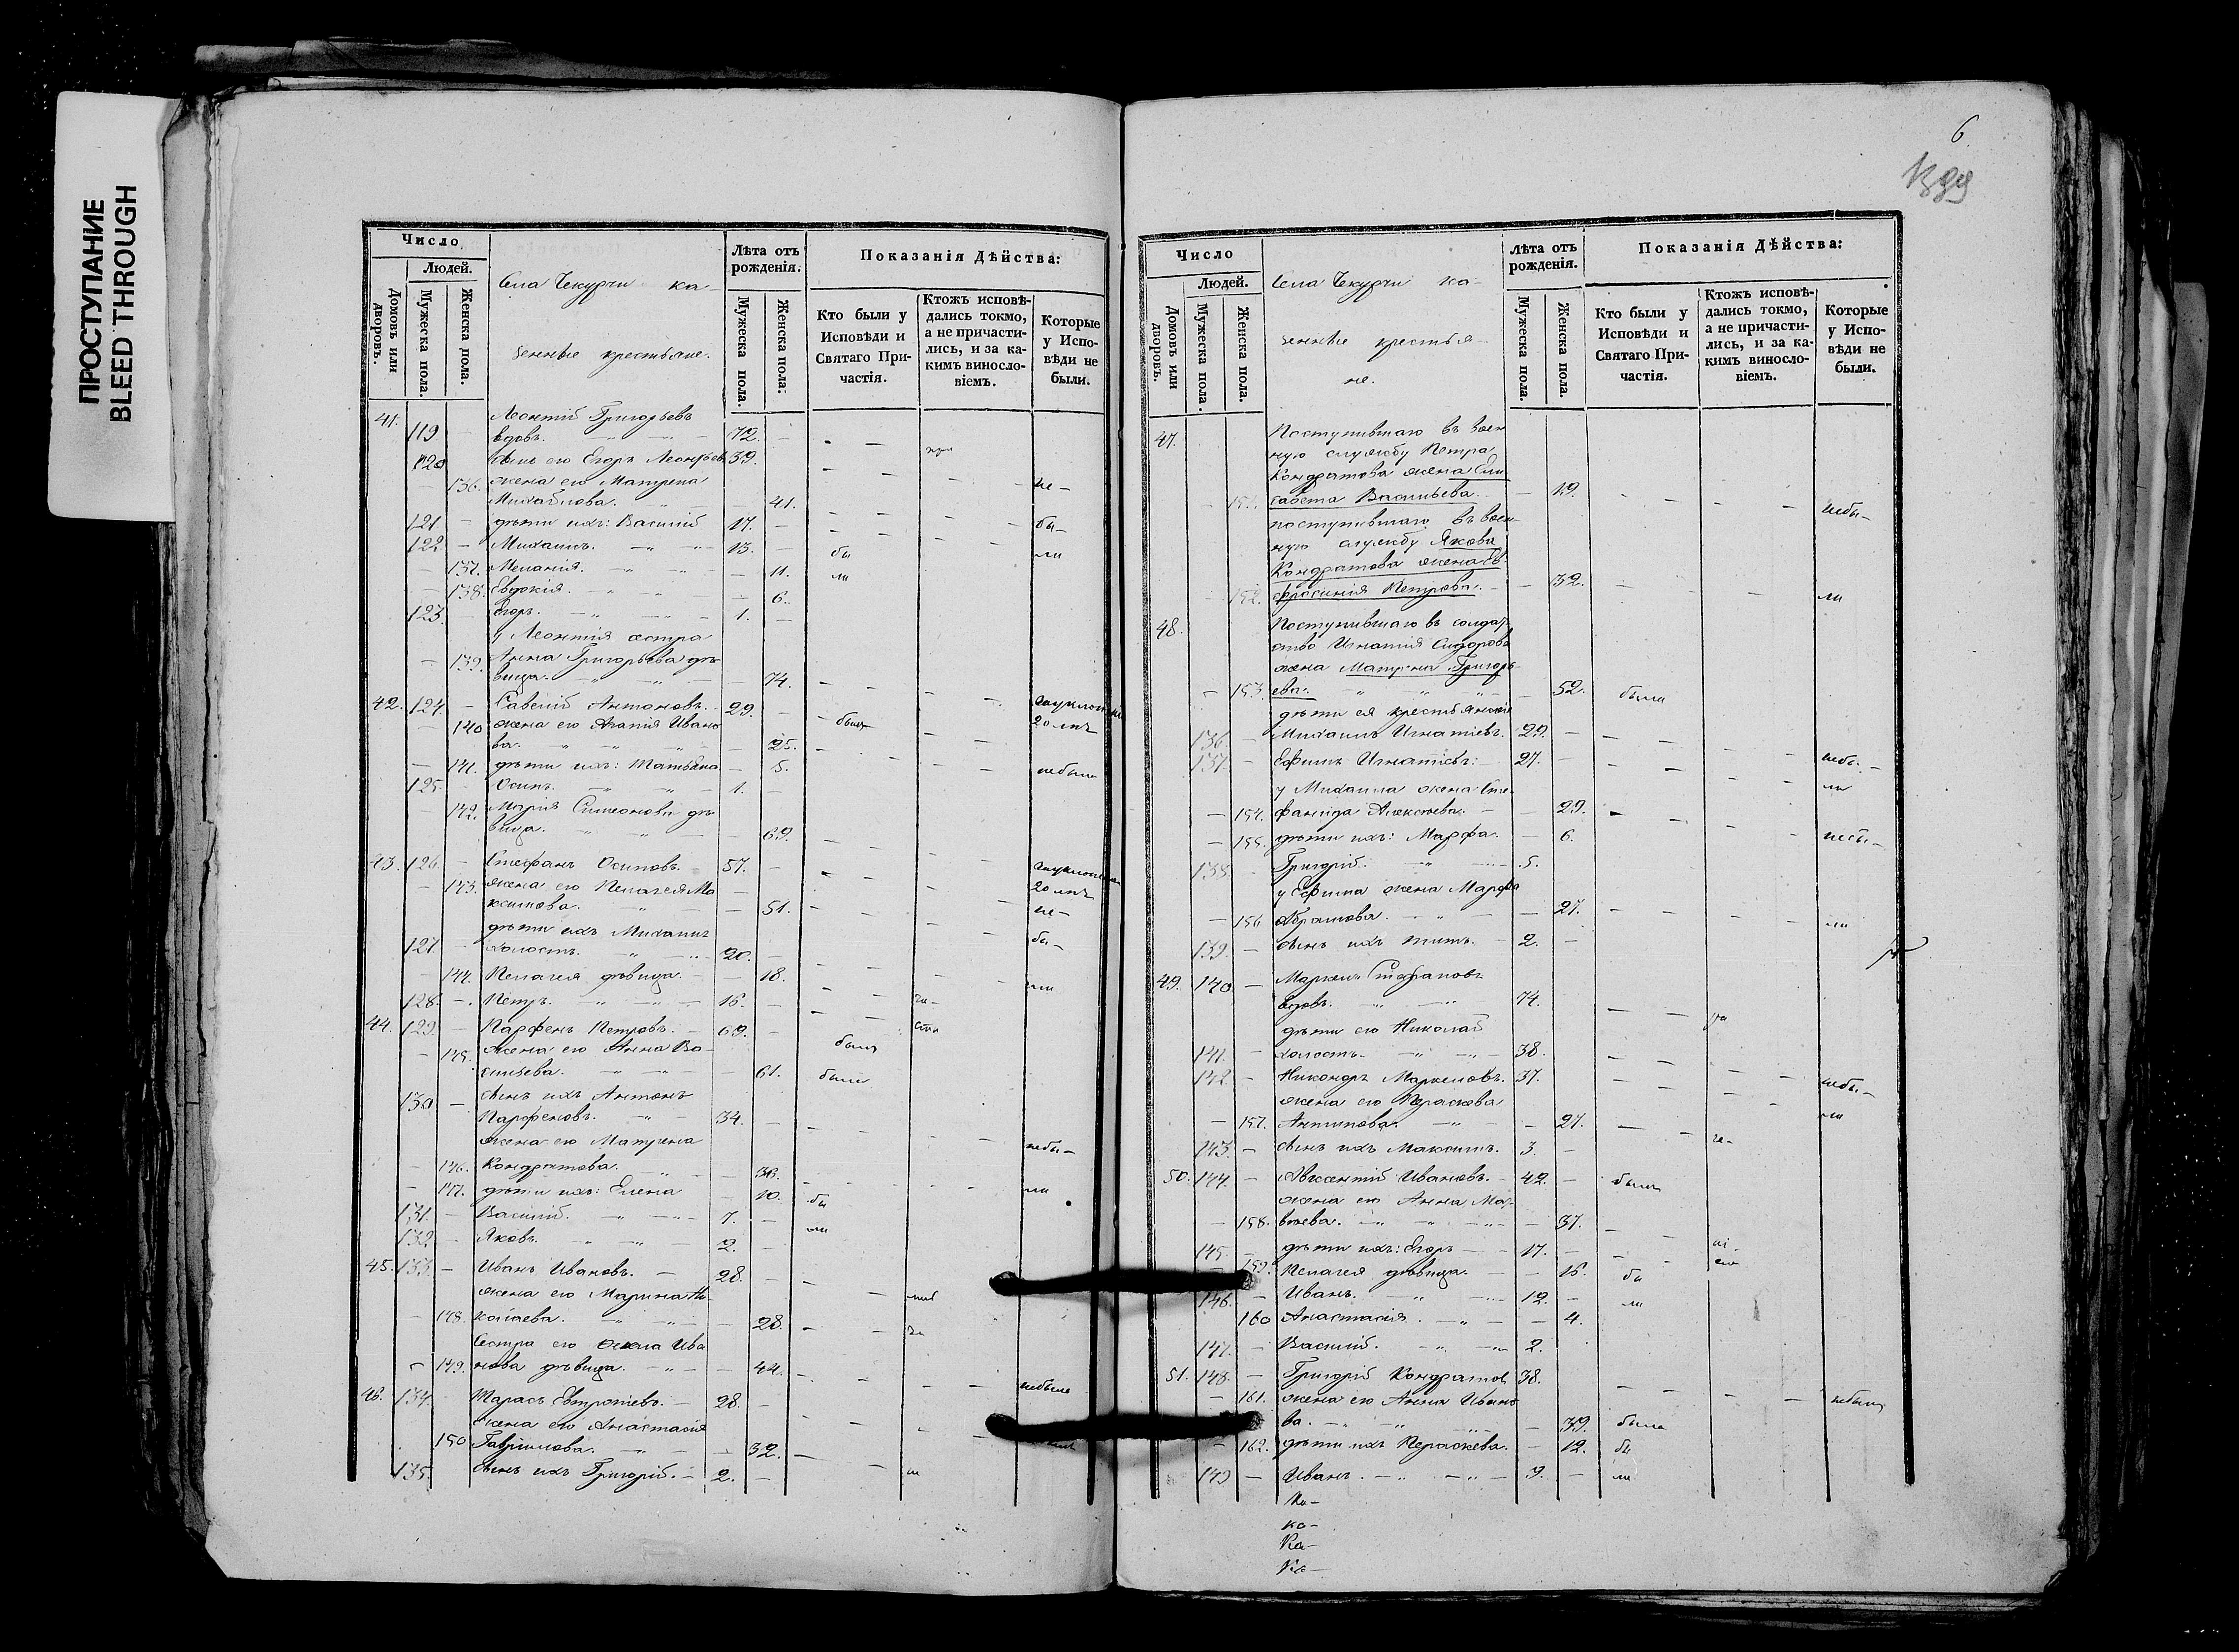 ПРОСТУПАНИЕ
BLEED THROUGH
Число
Людей.
Домовъ или дворовъ.
Мужеска пола.
Женска пола.
Села Чекурчи ка-
зенные крестьяне.
Лѣта отъ рожденія.
Мужеска пола.
Женска пола:
Показанія Дѣйства:
Кто были у Исповѣди и Святаго При-частія.
Ктожъ исповѣ-дались токмо, а не причасти-лись, и за ка-кимъ винословіемъ.
Которые у Испо-вѣди не были.
41. 119 Леонтій Григорьевъ
вдовъ. 72.
120 Сынъ его Егоръ Леонтьев. 39.
136. жена его Матрена
Михайлова. 41. не-
121 дѣти ихъ: Василій 17. бы-
122 Михаилъ. 13. бы ли
137. Меланія. 11. ли
138. Евдокія. 6.
123. Егоръ. 1.
у Леонтія сестра
139. Анна Григорьева дѣ
вица. 74.
42. 124. Савелій Антоновъ. 29. былъ
140 жена его Агапія Ивано 20 лѣтъ
ва. 25.
141. дѣти ихъ: Татьяна 5. небыла
125. Осипъ. 1.
142. Марія Симеонова дѣ
вица. 69.
43. 126. Стефанъ Осиповъ. 57.
143. жена его Пелагея Ма 20 лѣтъ
ксимова. 51. не-
дѣти ихъ Михаилъ
127. холостъ. 20. бы-
144. Пелагея дѣвица. 18. ли
128. Петръ. 16.
44. 129. Парфенъ Петровъ. 69. былъ
145. жена его Анна Ва
сильева. 61. была
130 Сынъ ихъ Антонъ
Парфеновъ. 34.
жена его Матрена небы-
146. Кондратова. 36.
147. дѣти ихъ: Елена 10. бы ли
131. Василій. 7. ли
132. Яковъ. 2.
45. 133. Иванъ Ивановъ. 28.
жена его Марина Ни-
148. колаева. 28.
Сестра его Ива
149. нова дѣвица. 44. небыла
46. 134. Тарасъ Евтропіевъ. 28.
жена его Анастасія
150 Гаврилова. 32.
135. Сынъ ихъ Григорій. 2.
6
Число
Людей.
Домовъ или дворовъ.
Мужеска пола.
Женска пола.
Села Чекурчи ка-
зенные крестья-
не.
Лѣта отъ рожденія.
Мужеска пола.
Женска пола.
Показанія Дѣйства:
Кто были у Исповѣди и Святаго При-частія.
Ктожъ исповѣ-дались токмо, а не причасти-лись, и за ка-кимъ винословіемъ.
Которые у Испо-вѣди не были.
47. Поступившаго въ воен
ную службу Петра
Кондратова жена Ели
151. савета Васильева. 19. небы-
поступившаго въ воен-
ную службу Якова
Кондратова жена Ев-
152. фросинія Петрова. 32. ли
48. Поступившаго въ солдат
ство Игнатія Сидорова
жена Матрена Григорь
153. ева. 52. была
дѣти ея крестьянскія
136. Михаилъ Игнатіевъ. 29.
137. Ефимъ Игнатіевъ: 27. небы-
у Михаила жена Сте- ли
154. фанида Алексѣева. 29.
155. дѣти ихъ: Марфа. 6. небы-
138. Григорій. 5.
у Ефима жена Марфа
156 Абрамова. 27. ли
139. Сынъ ихъ Титъ. 2.
49. 140 Маркелъ Стефановъ
вдовъ. 74.
дѣти его Николай
141. холостъ. 38.
142. Никаноръ Маркеловъ. 37. небы-
жена его Параскева
157. Антипова. 27. ли
143. Сынъ ихъ Максимъ. 3.
50. 144. Авксентій Ивановъ. 42. былъ
жена его Анна Мат-
158. вѣева. 37.
145. дѣти ихъ: Егоръ 17.
159. Пелагея дѣвица. 16. бы
146. Иванъ. 12. ли
160 Анастасія. 4.
147. Василій. 2.
51. 148. Григорій Кондратов. 38.
161. жена его Анна Ивано небылъ
ва. 39. была
162. дѣти ихъ Параскева. 12. бы
149 Иванъ. 9. ли
ко-
Ка-